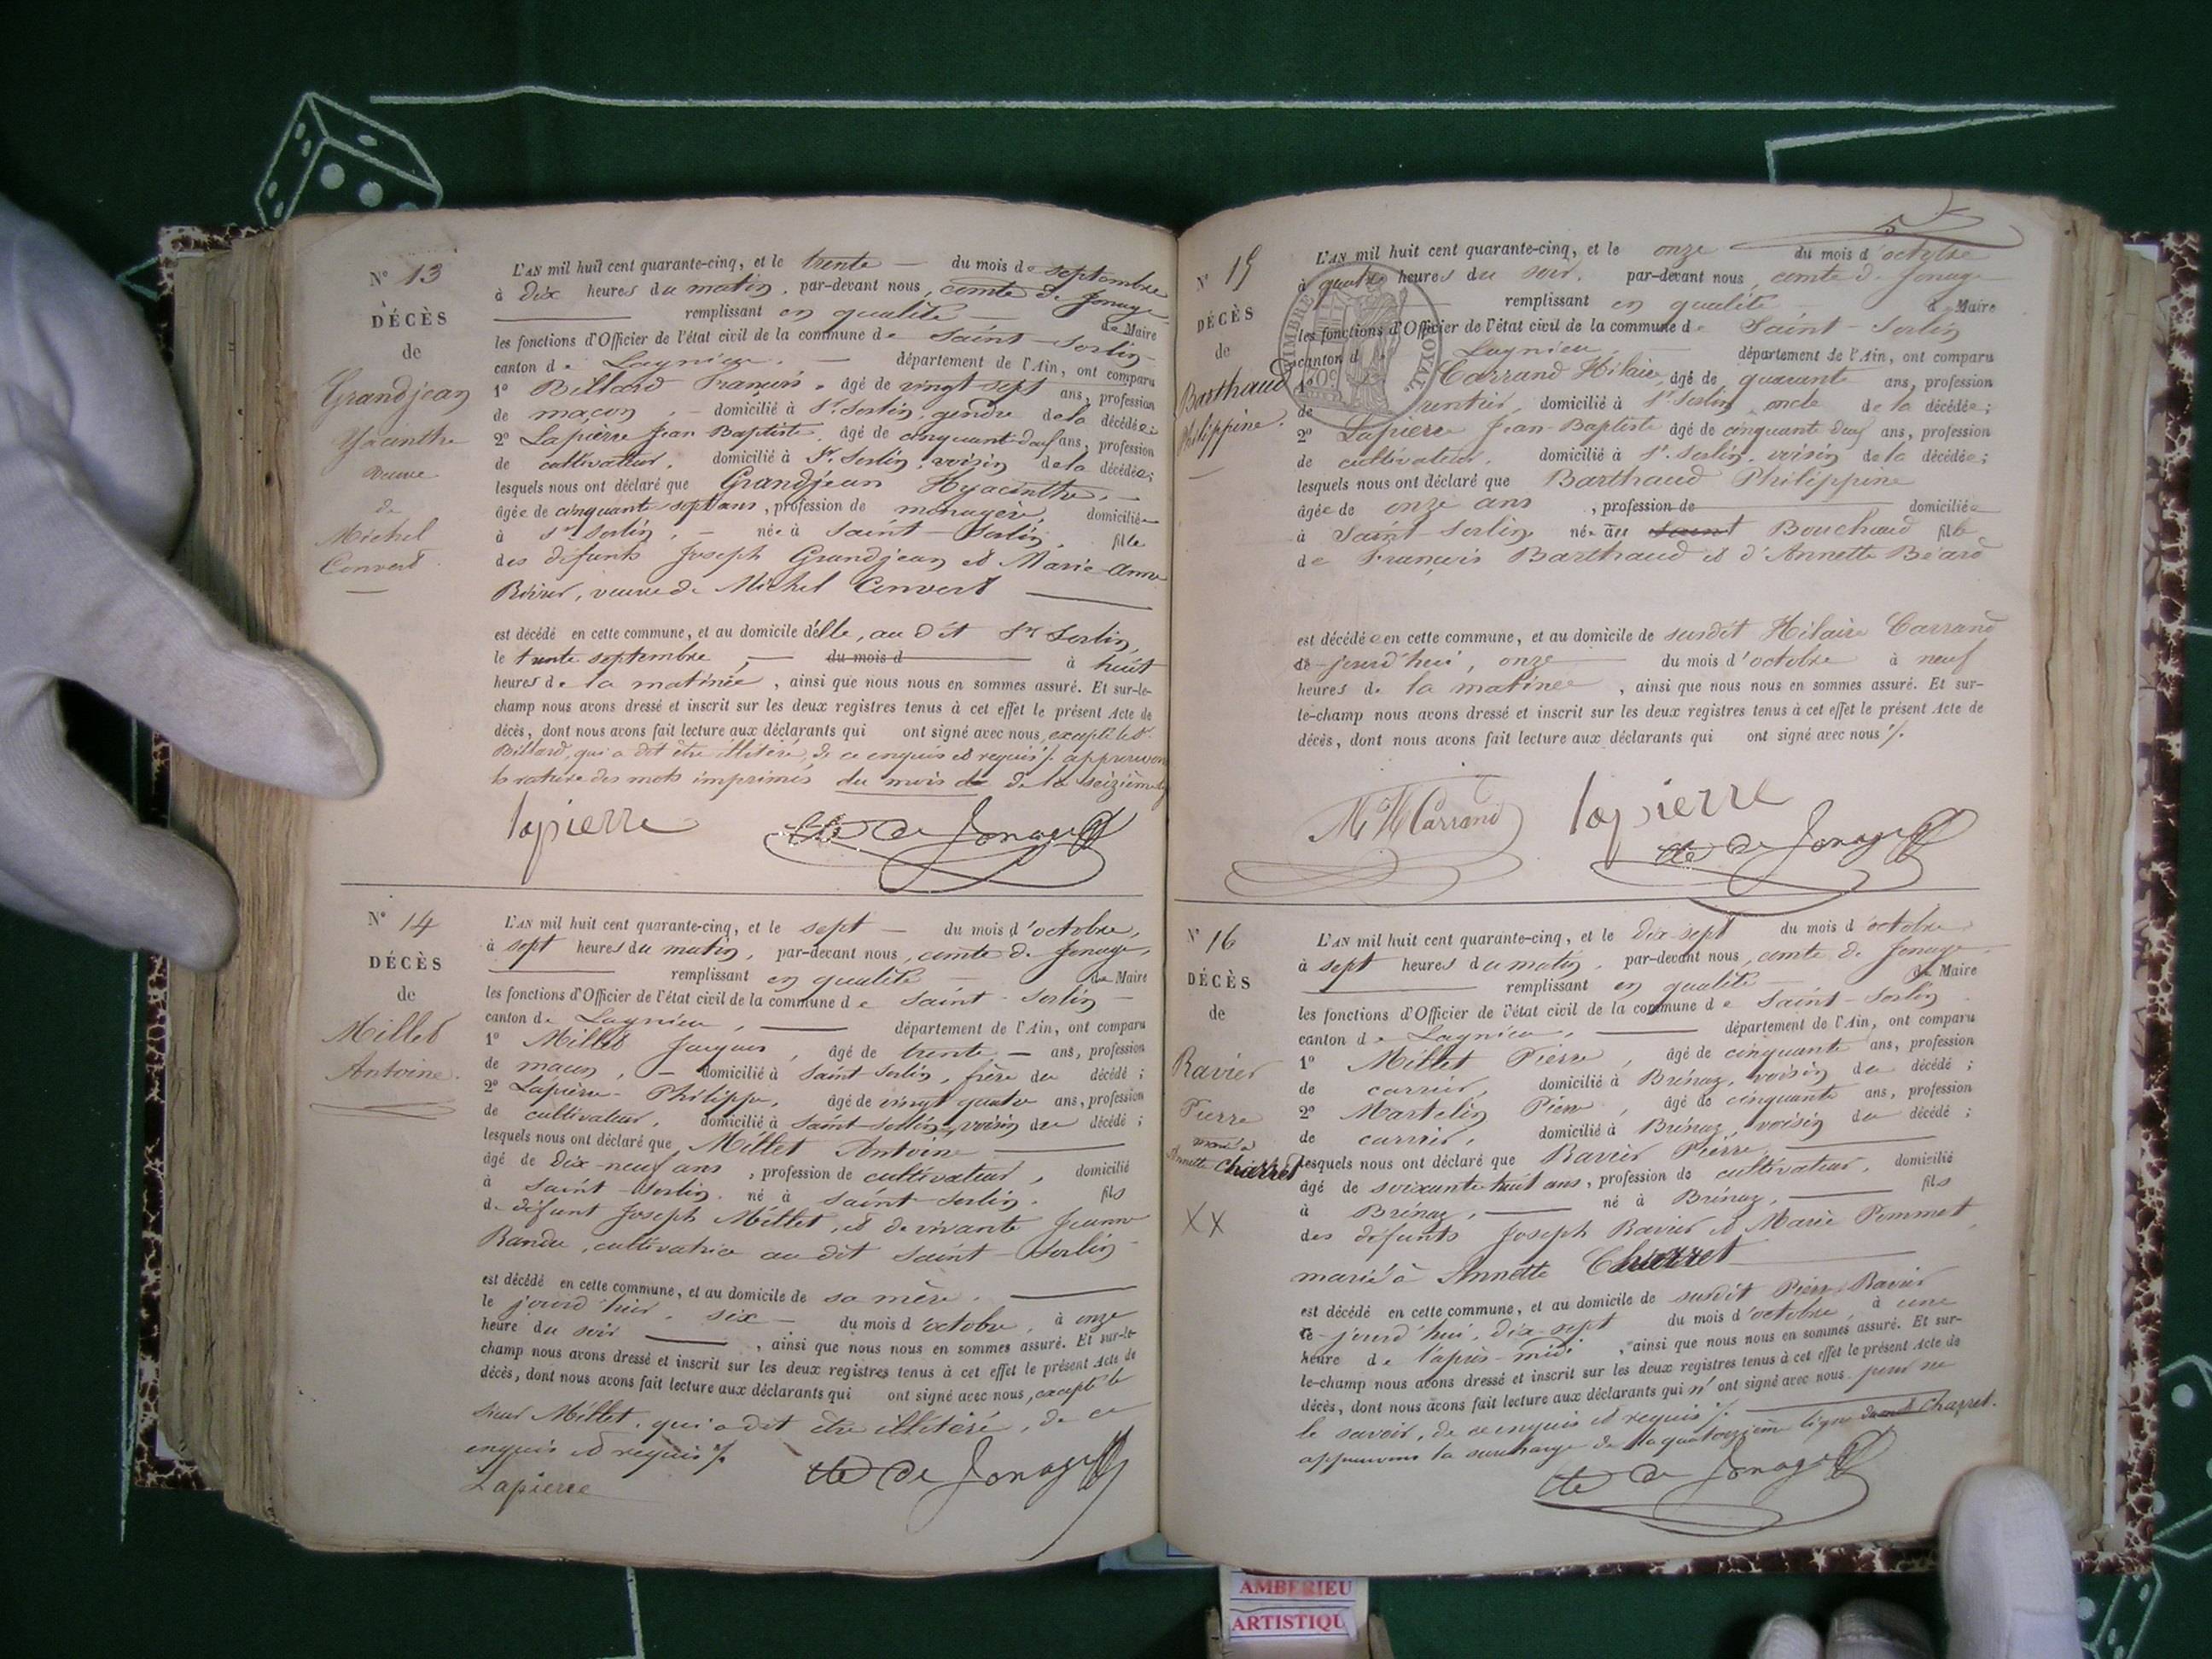 N° 13
DÉCÈS
de
Grandjean
Yacinthe
veuve
de
Michel
Convert
L'AN mil huit cent quarante-cinq, et le trente — du mois de septembre
à dix heures du matin, par-devant nous, comte de Jonage
remplissant en qualité — de Maire
les fonctions d'Officier de l'état civil de la commune de Saint-Sorlin
canton de Lagnieu, — département de l'Ain, ont comparu
1° Billard François, âgé de vingt sept ans, profession
de maçon, — domicilié à St. Sorlin, gendre de la décédée;
2° Lapierre Jean-Baptiste, âgé de cinquant deux ans, profession
de cultivateur, domicilié à St. Sorlin, voisin de la décédée;
lesquels nous ont déclaré que Grandjean Hyacinthe, —
âgée de cinquante sept ans, profession de ménagère, domiciliée
à St Sorlin, — née à Saint-Sorlin, fille
des défunts Joseph Grandjean et Marie-Anne
veuve de Michel Convert —
est décédé en cette commune, et au domicile d'elle, au dit St Sorlin,
le trente septembre, — du mois d — à huit
heures de la matinée, ainsi que nous nous en sommes assuré. Et sur-le-
champ nous avons dressé et inscrit sur les deux registres tenus à cet effet le présent Acte de
décès, dont nous avons fait lecture aux déclarants qui ont signé avec nous, excepté le Sr.
Billard, qui a dit être illitéré, de ce enquis et requis ./. approuvons
la rature des mots imprimés du mois de de la seizième
lapierre
Cte De Jonage
N° 14
DÉCÈS
de
Millet
Antoine.
L'AN mil huit cent quarante-cinq, et le sept — du mois d'octobre,
à sept heures du matin, par-devant nous, comte de Jonage,
remplissant en qualité — de Maire
les fonctions d'Officier de l'état civil de la commune de Saint-Sorlin —
canton de Lagnieu, — département de l'Ain, ont comparu
1° Millet Jacques, âgé de trente — ans, profession
de maçon, — domicilié à Saint-Sorlin, frère du décédé;
2° Lapierre Philippe, âgé de vingt quatre ans, profession
de cultivateur, domicilié à Saint-Sorlin, voisin du décédé;
lesquels nous ont déclaré que Millet Antoine —
âgé de dix-neuf ans, profession de cultivateur, domicilié
à Saint-Sorlin, né à Saint-Sorlin, fils
de défunt Joseph Millet, et de vivante Jeanne
cultivatrice au dit Saint-Sorlin
est décédé en cette commune, et au domicile de sa mère. —
le jourd'hier, six — du mois d'octobre, à onze
heure du soir —, ainsi que nous nous en sommes assuré. Et sur-le-
champ nous avons dressé et inscrit sur les deux registres tenus à cet effet le présent Acte de
décès, dont nous avons fait lecture aux déclarants qui ont signé avec nous, excepté le
sieur Millet, qui a dit être illitéré, de ce
enquis et requis ./.
Lapierre
Cte De Jonage
5
N° 15
DÉCÈS
de
Barthaud
Philippine.
TIMBRE ROYAL
L'AN mil huit cent quarante-cinq, et le onze — du mois d'octobre
à quatre heures du soir, par-devant nous, comte de Jonage
remplissant en qualité de Maire
les fonctions d'Officier de l'état civil de la commune de Saint-Sorlin
canton de Lagnieu, département de l'Ain, ont comparu
1° Carrand Hilaire, âgé de quarante ans, profession
de rentier, domicilié à St. Sorlin, oncle de la décédée;
2° Lapierre Jean-Baptiste âgé de cinquante deux ans, profession
de cultivateur, domicilié à St. Sorlin, voisin de la décédée;
lesquels nous ont déclaré que Barthaud Philippine
âgée de onze ans, profession de — domiciliée
à Saint-Sorlin née au saint Bouchaud fille
de François Barthaud et d'Annette Béard
est décédée en cette commune, et au domicile de susdit Hilaire Carrand
ce-jourd'hui, onze — du mois d'octobre à neuf
heures de la matinée, ainsi que nous nous en sommes assuré. Et sur-
le-champ nous avons dressé et inscrit sur les deux registres tenus à cet effet le présent Acte de
décès, dont nous avons fait lecture aux déclarants qui ont signé avec nous ./.
M H Carrand
lapierre
Cte De Jonage
N° 16
DÉCÈS
de
Ravier
Pierre
marié à
Annette Charret
XX
L'AN mil huit cent quarante-cinq, et le dix-sept du mois d'octobre
à sept heures du matin, par-devant nous, comte de Jonage
remplissant en qualité — de Maire
les fonctions d'Officier de l'état civil de la commune de Saint-Sorlin
canton de Lagnieu, — département de l'Ain, ont comparu
1° Millet Pierre, âgé de cinquante ans, profession
de carrier, domicilié à Brénaz, voisin du décédé;
2° Martelin Pierre, âgé de cinquante ans, profession
de carrier, domicilié à Brénaz, voisin du décédé;
lesquels nous ont déclaré que Ravier Pierre, —
âgé de soixante huit ans, profession de cultivateur, domicilié
à Brénaz, — né à Brénaz, — fils
des défunts Joseph Ravier et Marie Pommet,
marié à Annette Charret —
est décédé en cette commune, et au domicile de susdit Pierre Ravier
ce-jourd'hui, dix-sept du mois d'octobre, à une
heure de l'après-midi, ainsi que nous nous en sommes assuré. Et sur-
le-champ nous avons dressé et inscrit sur les deux registres tenus à cet effet le présent Acte de
décès, dont nous avons fait lecture aux déclarants qui n'ont signé avec nous pour ne
le savoir, de ce enquis et requis ./. —
approuvons la surcharge de la quatorzième ligne Charret.
Cte De Jonage
AMBERIEU
ARTISTIQU